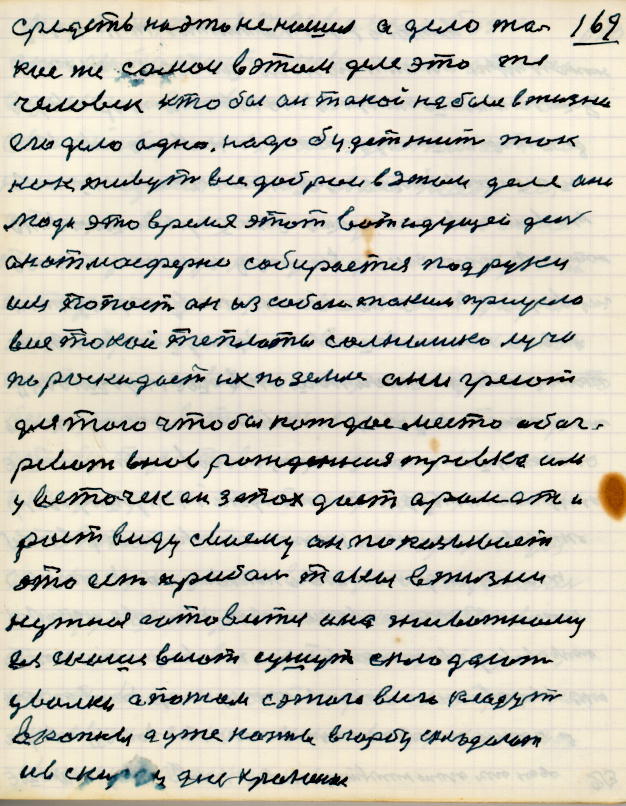 средств на дто не нашел а дело та- 169
кое же самои в этом деле это ти
человек кто бы ан такой не был в жизни
его дело одно. надо будет жит так
как живут все доброи в этом деле они
люди это время этот вот идущей ден
анатмасферно собирается под руки
ей попост ан из собой таким приусло
вие токой теплоты солнышко лучи
по роскидает их по земле они греют
для того чтобы каждое место обог-
ревот внов рожденния травка им
цветочек ан запох дает аромат и
рост виду своему ан показывает
это ест прибал такия в жизни
нужная готовится ана животному
ея скашивают сушут складают
у валки а потом с этого виго кладут
в копны а уже копны в горбу складают
и в скирту для хранения